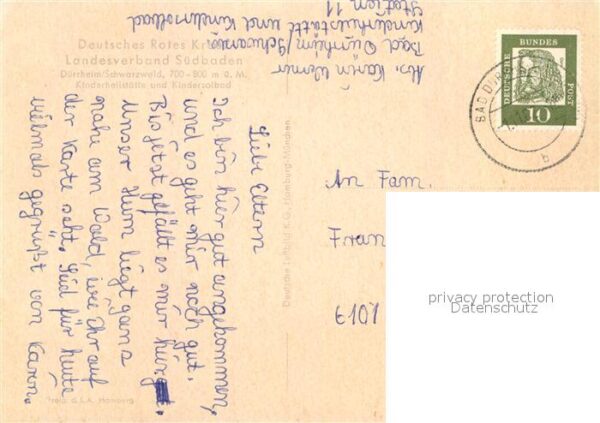 Deutsches Rotes Kr
Landesverband Südbaden
Dürrheim/Schwarzwald, 700-800 m ü. M.
Kinderheilstätte und Kindersolbad
Abs. Karin Werner
Bad Dürrheim/Schwarzw.
Kinderheilstätte und Kindersolbad
Station 11
Liebe Eltern
Ich bin hier gut angekommen,
und es geht mir noch gut.
Bis jetzt gefällt es mir hier.
Unser Heim liegt ganz
nahe am Wald, wie Ihr auf
der Karte seht. Seid für heute
vielmals gegrüßt von Karin.
Deutsche Luftbild K.G., Hamburg-München
DEUTSCHE
BUNDES
POST
10
BAD DÜRR
b
An Fam.
Fran
6101
privacy protection
Datenschutz